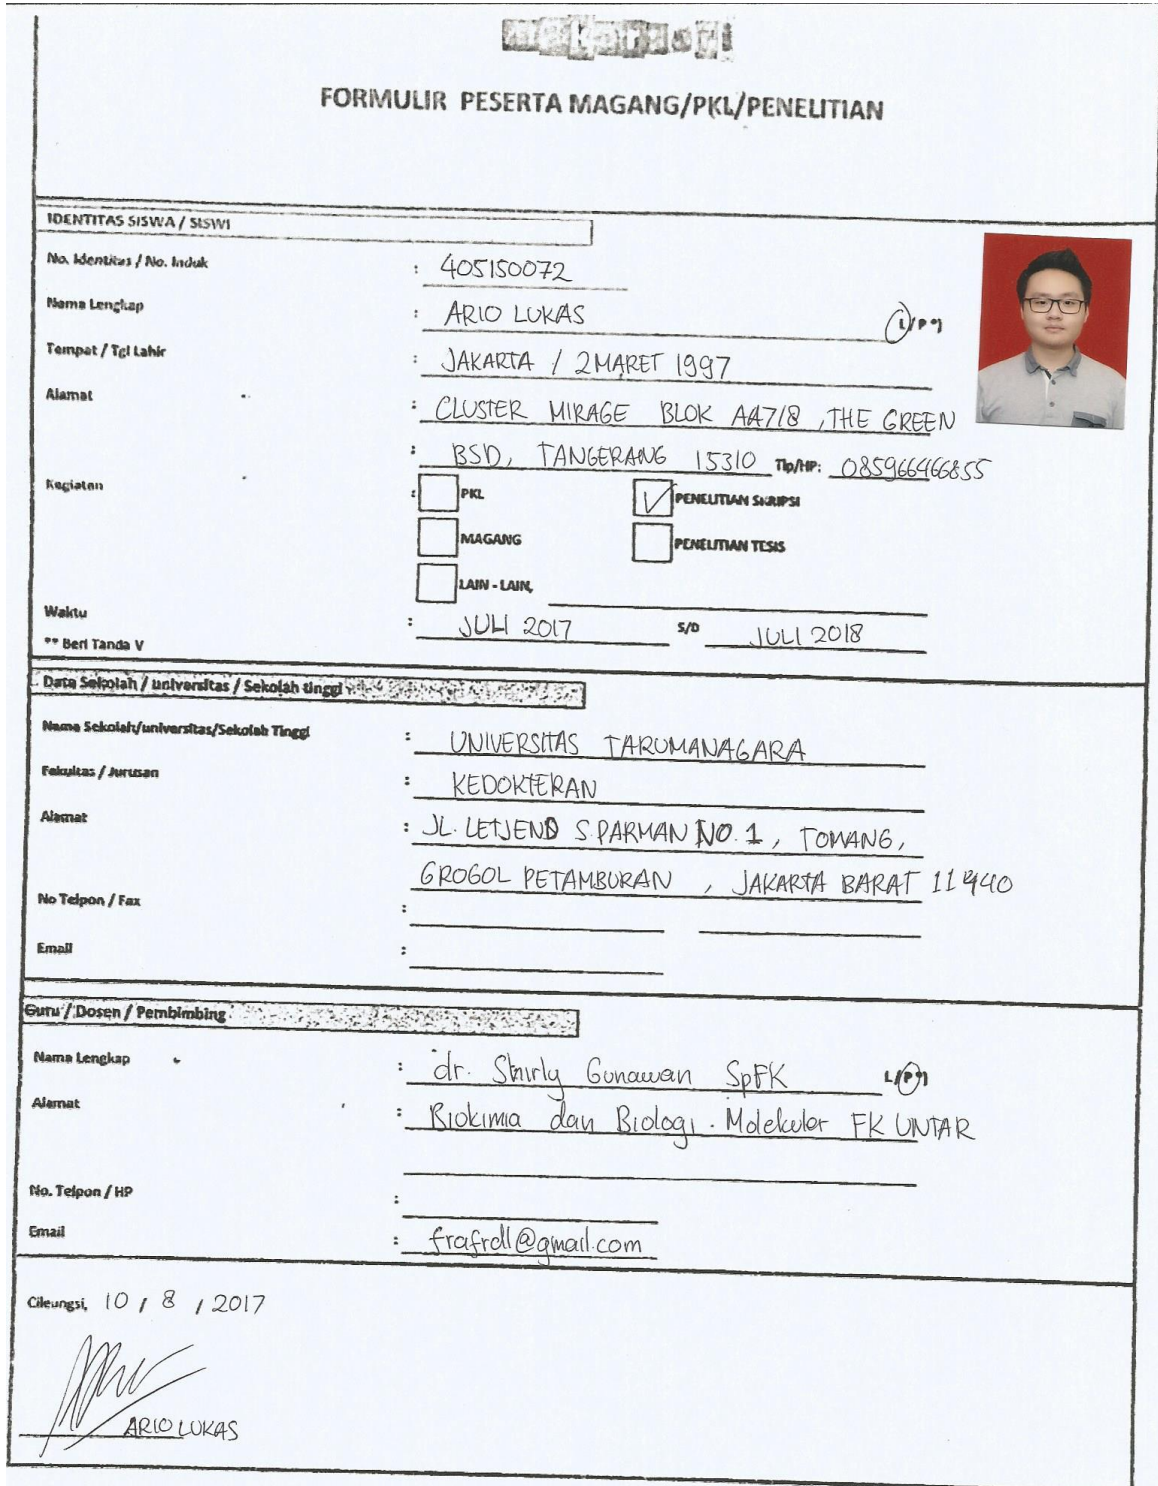 FORMULIR PESERTA MAGANG/PKL/PENELITIAN
IDENTITAS SISWA / SISWI
No. Identitas / No. Induk : 405150072
Nama Lengkap : ARIO LUKAS L/P *)
Tempat / Tgl Lahir : JAKARTA / 2 MARET 1997
Alamat : CLUSTER MIRAGE BLOK AA7/8 , THE GREEN
: BSD, TANGERANG 15310 Tlp/HP: 085966466855
Kegiatan : PKL V PENELITIAN SKRIPSI
MAGANG PENELITIAN TESIS
LAIN - LAIN,
Waktu : JULI 2017 S/D JULI 2018
** Beri Tanda V
Data Sekolah / universitas / Sekolah tinggi
Nama Sekolah/universitas/Sekolah Tinggi : UNIVERSITAS TARUMANAGARA
Fakultas / Jurusan : KEDOKTERAN
Alamat : JL. LETJEND S.PARMAN NO. 1 , TOMANG,
GROGOL PETAMBURAN , JAKARTA BARAT 11440
No Telpon / Fax :
Email :
Guru / Dosen / Pembimbing
Nama Lengkap : dr. Shirly Gunawan SpFK L/P *)
Alamat : Biokimia dan Biologi Molekuler FK UNTAR
No. Telpon / HP :
Email : frafrdll@gmail.com
Cileungsi, 10 / 8 / 2017
ARIO LUKAS